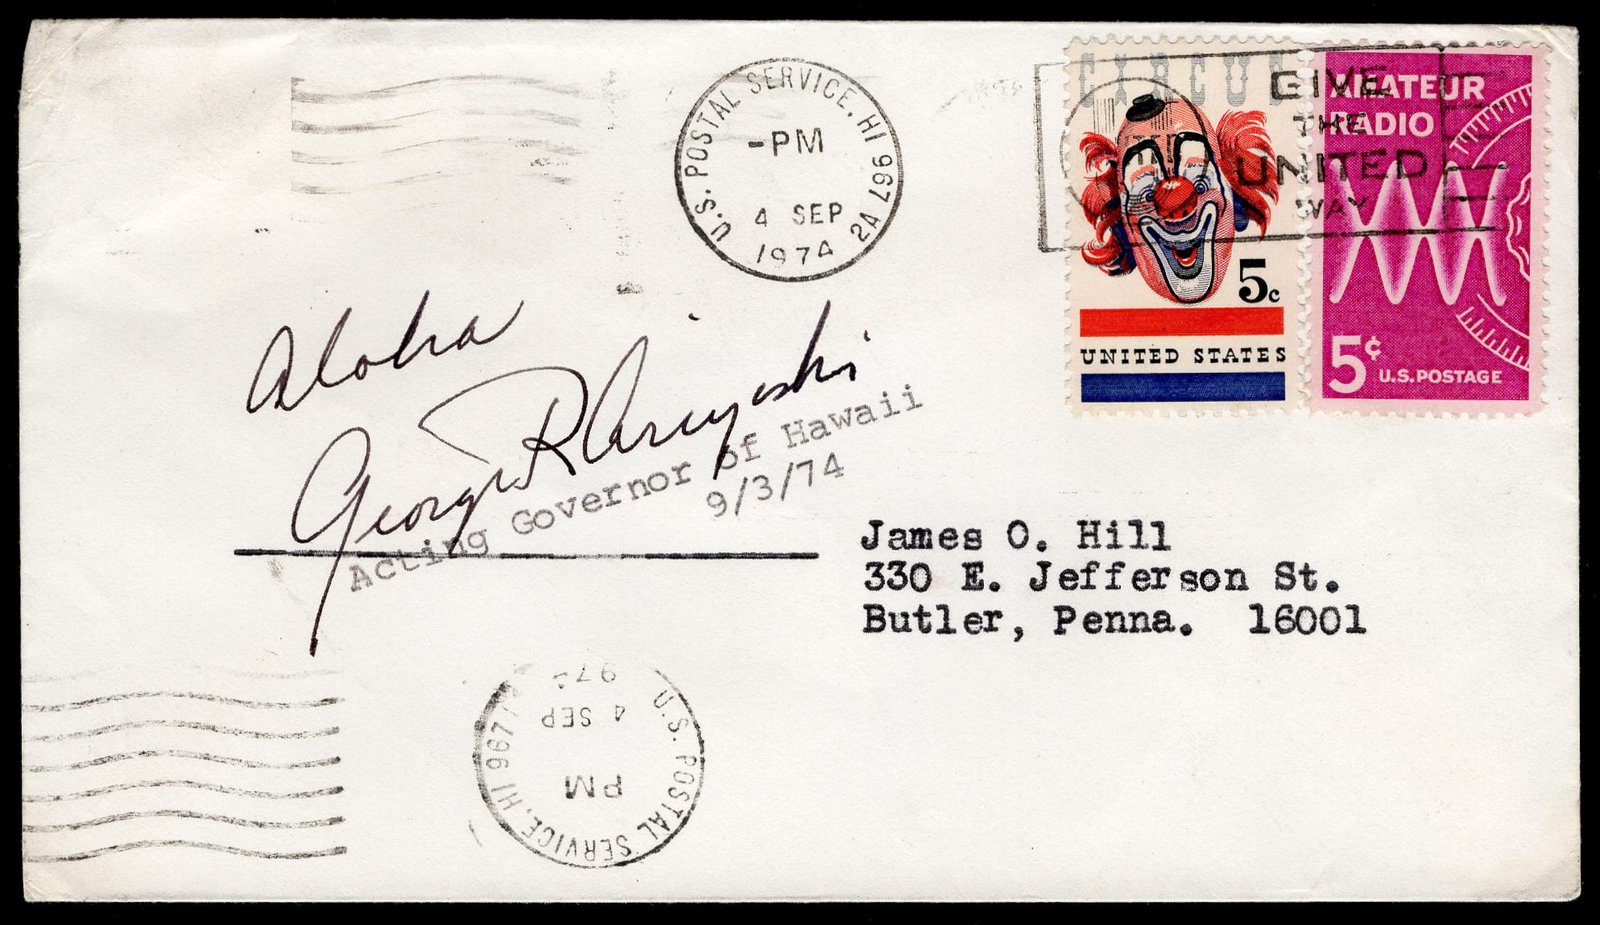 U.S. POSTAL SERVICE, HI 967 2A
-PM
4 SEP
1974
CIRCUS
5c
UNITED STATES
GIVE
THE
UNITED
WAY
AMATEUR
RADIO
5¢
U.S. POSTAGE
Aloha
George R Ariyoshi
Acting Governor of Hawaii
9/3/74
James O. Hill
330 E. Jefferson St.
Butler, Penna. 16001
U.S. POSTAL SERVICE, HI 967
PM
4 SEP